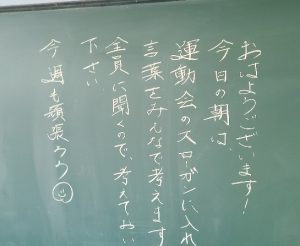 おはようございます!
今日の朝は、
運動会のスローガンに入れ
言葉をみんなで考えます
全員に聞くので、考えておい
下さい
今週も頑張ろう